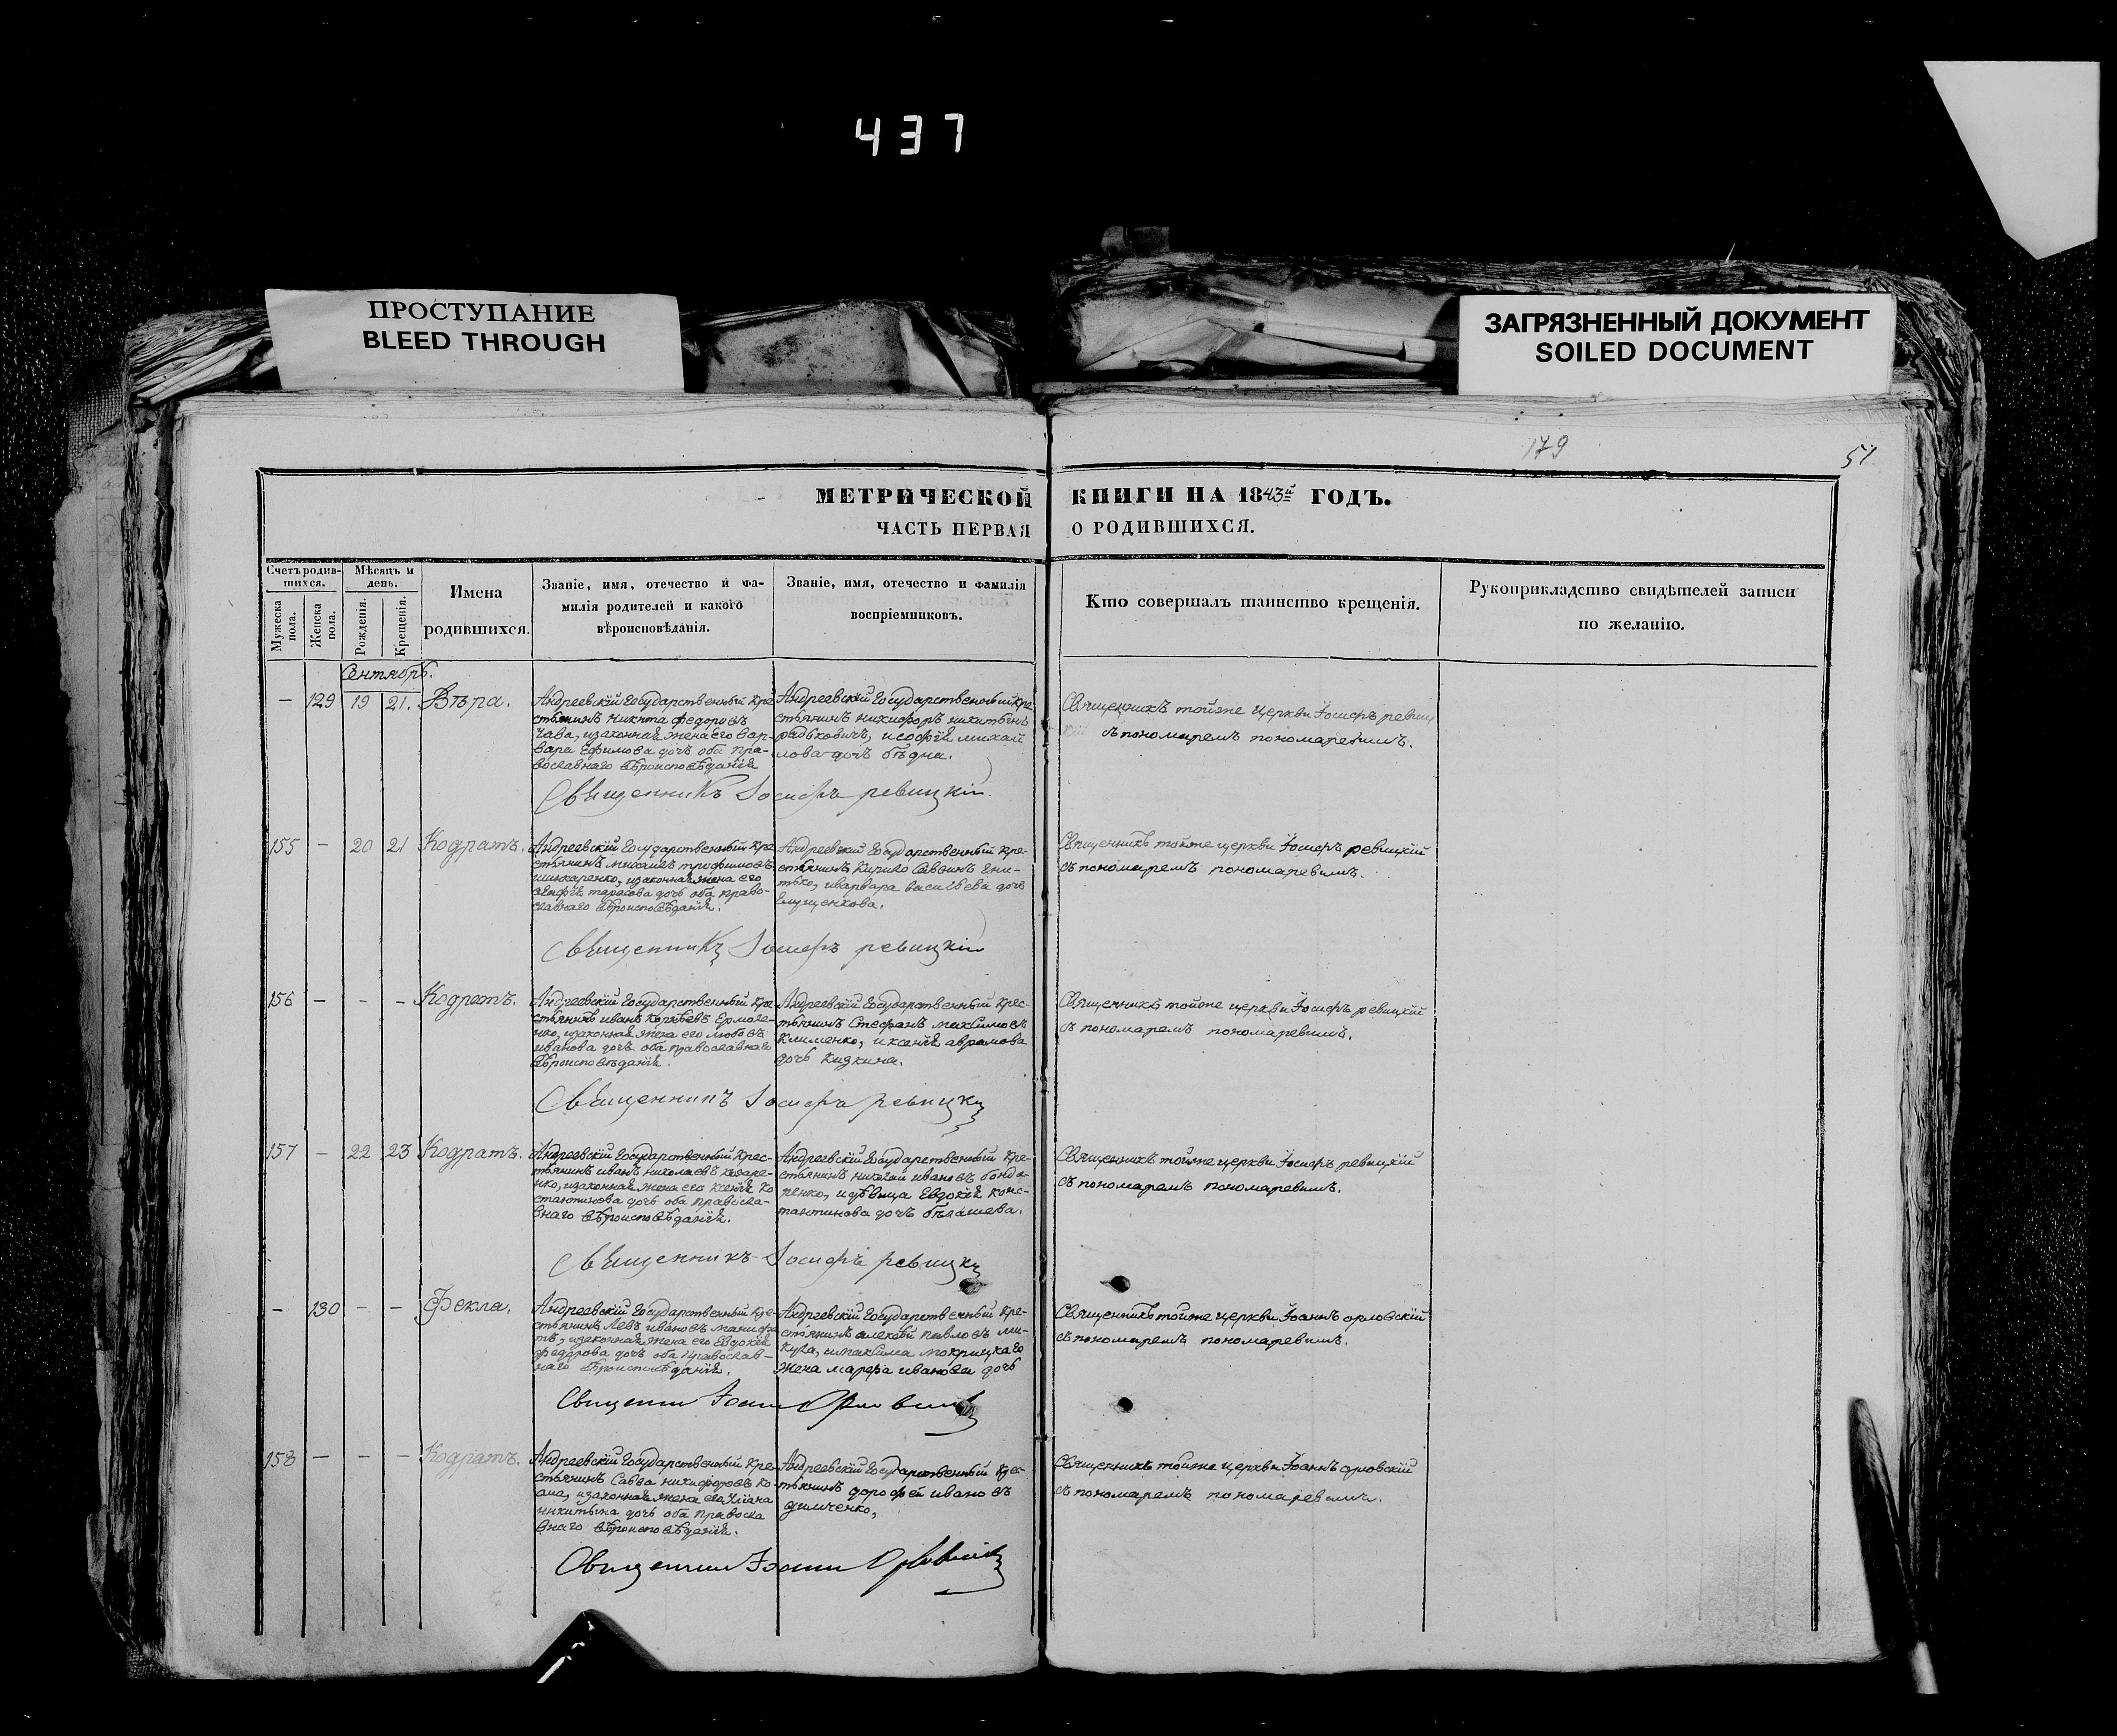 437
ПРОСТУПАНИЕ
BLEED THROUGH
ЗАГРЯЗНЕННЫЙ ДОКУМЕНТ
SOILED DOCUMENT
179
51
МЕТРИЧЕСКОЙ КНИГИ НА 1843й ГОДЪ.
ЧАСТЬ ПЕРВАЯ О РОДИВШИХСЯ.
Счетъ родив-
шихся.
Мужеска пола.
Женска пола.
Мѣсяцъ и
день.
Рожденія.
Крещенія.
Имена
родившихся.
Званіе, имя, отечество и фа-
милія родителей и какого
вѣроисповѣданія.
Званіе, имя, отечество и фамилія
воспріемниковъ.
Кто совершалъ таинство крещенія.
Рукоприкладство свидѣтелей записи
по желанію.
Сентябрь.
— 129 19 21. Вѣра.
Андреевскій Государственный Кре
стьянинъ Никита Федоровъ
Чава, изаконная жена его Вар-
вара Ефимова дочь оба пра-
вославнаго вѣроисповѣданія
Андреевскій Государственный Кре
стьянинъ никифоръ никитинъ
радьковичъ, исофія михай
лова дочь бѣдна.
Священникъ тойже церкви Іосифъ ревиц
кій съ пономаремъ пономаревымъ.
Священникъ Іосифъ ревицкій
155 — 20 21 Кодратъ.
Андреевскій Государственный Кре
стьянинъ михаилъ трофимовъ
шинкаренко, изаконная жена его
тарасова дочь оба право-
славнаго вѣроисповѣданія.
Андреевскій Государственный Кре-
стьянинъ Кирило Саввинъ Гни-
тько, иварвара васильева дочь
Глущенкова.
Священникъ тойже церкви Іосифъ ревицкій
съ пономаремъ пономаревымъ.
Священникъ Іосифъ ревицкій
156 — — — Кодратъ.
Андреевскій Государственный Кре
стьянинъ иванъ Корнѣевъ Ермоле-
нко, изаконная жена его любовь
иванова дочь оба православнаго
вѣроисповѣданія.
Андреевскій Государственный Крес-
тьянинъ Стефанъ максимовъ
Клименко, иксенія аврамова
дочь Кизкина.
Священникъ тойже церкви Іосифъ ревицкій
съ пономаремъ пономаревымъ.
Священникъ Іосифъ ревицкій
157 — 22 23 Кодратъ.
Андреевскій Государственный Крес-
тьянинъ иванъ николаевъ
нко, изаконная жена его ксенія Ко
стантинова дочь оба православ-
внаго вѣроисповѣданія.
Андреевскій Государственный Кре-
стьянинъ николай ивановъ бонда-
ренко, идѣвица Евдокія конс-
тантинова дочь бѣлашева.
Священникъ тойже церкви Іосифъ ревицкій
съ пономаремъ пономаревымъ.
Священникъ Іосифъ ревицкій
— 130 — — Фекла.
Андреевскій Государственный Кре-
стьянинъ Левъ ивановъ
изаконная жена его Евдокія
федорова дочь оба православ-
наго вѣроисповѣданія.
Андреевскій Государственный Кре-
стьянинъ алексѣй павловъ ми-
куха, имаксима мокрицкаго
жена марфа иванова дочь
Священникъ тойже церкви Іоаннъ орловскій
съ пономаремъ пономаревымъ.
Священникъ Іоаннъ Орловскій
158 — — — Кодратъ.
Андреевскій Государственный Кре-
стьянинъ Савва никифоровъ Ко-
изаконная жена его Уліана
никитина дочь оба правосла
внаго вѣроисповѣданія.
Андреевскій Государственный Крес-
тьянинъ дорофей ивановъ
димченко,
Священникъ тойже церкви Іоаннъ орловскій
съ пономаремъ пономаревымъ.
Священникъ Іоаннъ Орловскій